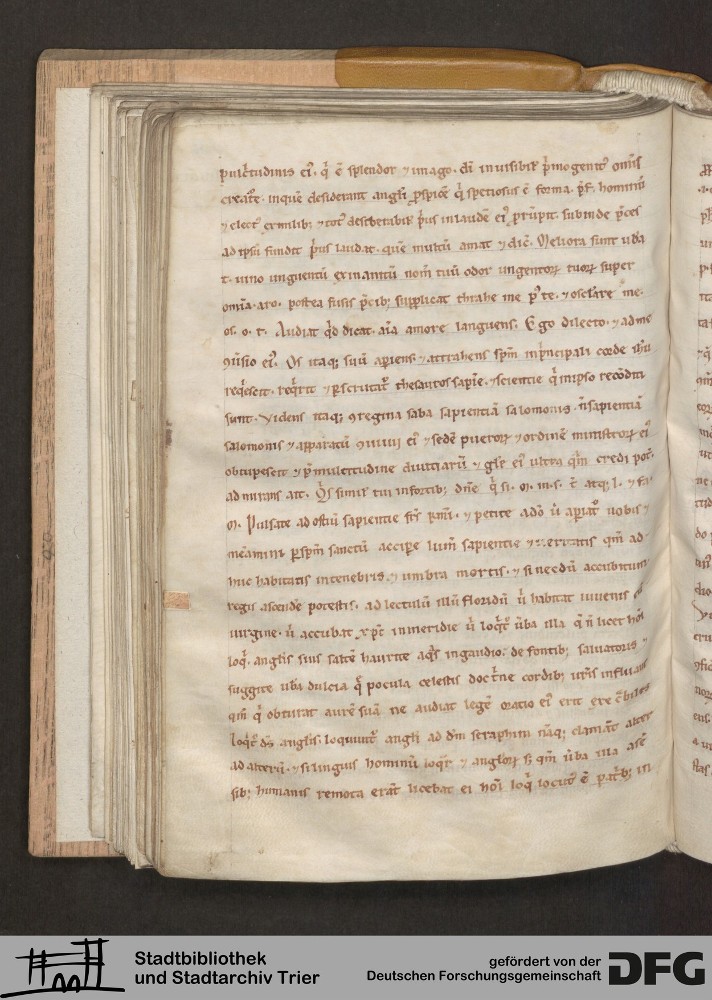 pulcͥtudinis eiꝰ. q̇ ē splendor ⁊ imago. dī inuisibilꝭ pͥmogenitꝰ omīs
creatͬe. inquē desiderant angłi ꝓspicͤe q̇ speciosus ē forma. pͬ. hominū
ad ipsū fundit pͥus laudat. quē multū amat ⁊ dīc. Meliora sunt ub̄a
t. uino unguentū exinanitū nom̄ tuū odor ungentoꝝ tuoꝝ super
om̄ia. aro. postea fusis p̄cib; supplicat thrahe me pꝰ te. ⁊ me.
os. o. t. Audiat qd̄ dicat. aīa amore languens. Ego dilecto. ⁊ ad me
ꝯuͥsio eiꝰ. Os itaq; suū apiens ⁊ attrahens spm̄ inpͥncipali corde
reqͥescit. reqͥrit ⁊ pscrutatͬ thesauros sapīe. ⁊ scientie q̇ inipso recōditi
sunt. Videns itaq; ꝯregina saba sapientiā salomonis. sapientiā
salomonis ⁊ apparatū eiꝰ ⁊ sedē pueroꝝ ⁊ ordinē ministroꝝ eiꝰ
obtupescit ⁊ pͬ multitudine diuitiarū ⁊ glͬe eiꝰ ultra qm̄ credi potͬ.
admirans ait. Qͥs similͥ tui infortib; dn̄e q̇ si. m. in. s. t̄ atq; l. ⁊ fa.
m. Pulsate ad ostiū sapientie fr̄s km̄i. ⁊ petite adō ū apiatͬ nobis ⁊
meͬamini p spm̄ sanctū accipͤe lum̄ sapientie ⁊ ueritatis qm̄ ad
huc habitatis intenebris. ⁊ umbra mortis. ⁊ si necdū accubitum
regis ascendͤe potestis. ad lectulū illū floridū ū habitat iuuenis cū
uirgine. ū accubat xp̄c inmeridie ū loqͥtͬ ūba illa q̄ n̄ licet hoī
loqͥ. angłis siuͥs saltē haurite aqͣs ingaudio. de fontib; saluatoris ⁊
suggite ub̄a dulcia q̄ pocula celestis doctͥne cordib; ur̄is influant
qm̄ q̇ obturat aurē suā ne audiat legē oratio eiꝰ erit
loqͥtͬ dꝰ angłis. loquuntͬ angłi ad dm̄ seraphim nāq; clamāt alter
ad alterū. ⁊ si linguis hominū loqͬ ⁊ angloꝝ sꝫ qm̄ ūba illa
sib; humanis remota erāt licebat ei hoī loqͥ locutꝰ ē patͥb; in
Stadtbibliothek
und Stadtarchiv Trier
gefördert von der
Deutschen Forschungsgemeinschaft
DFG